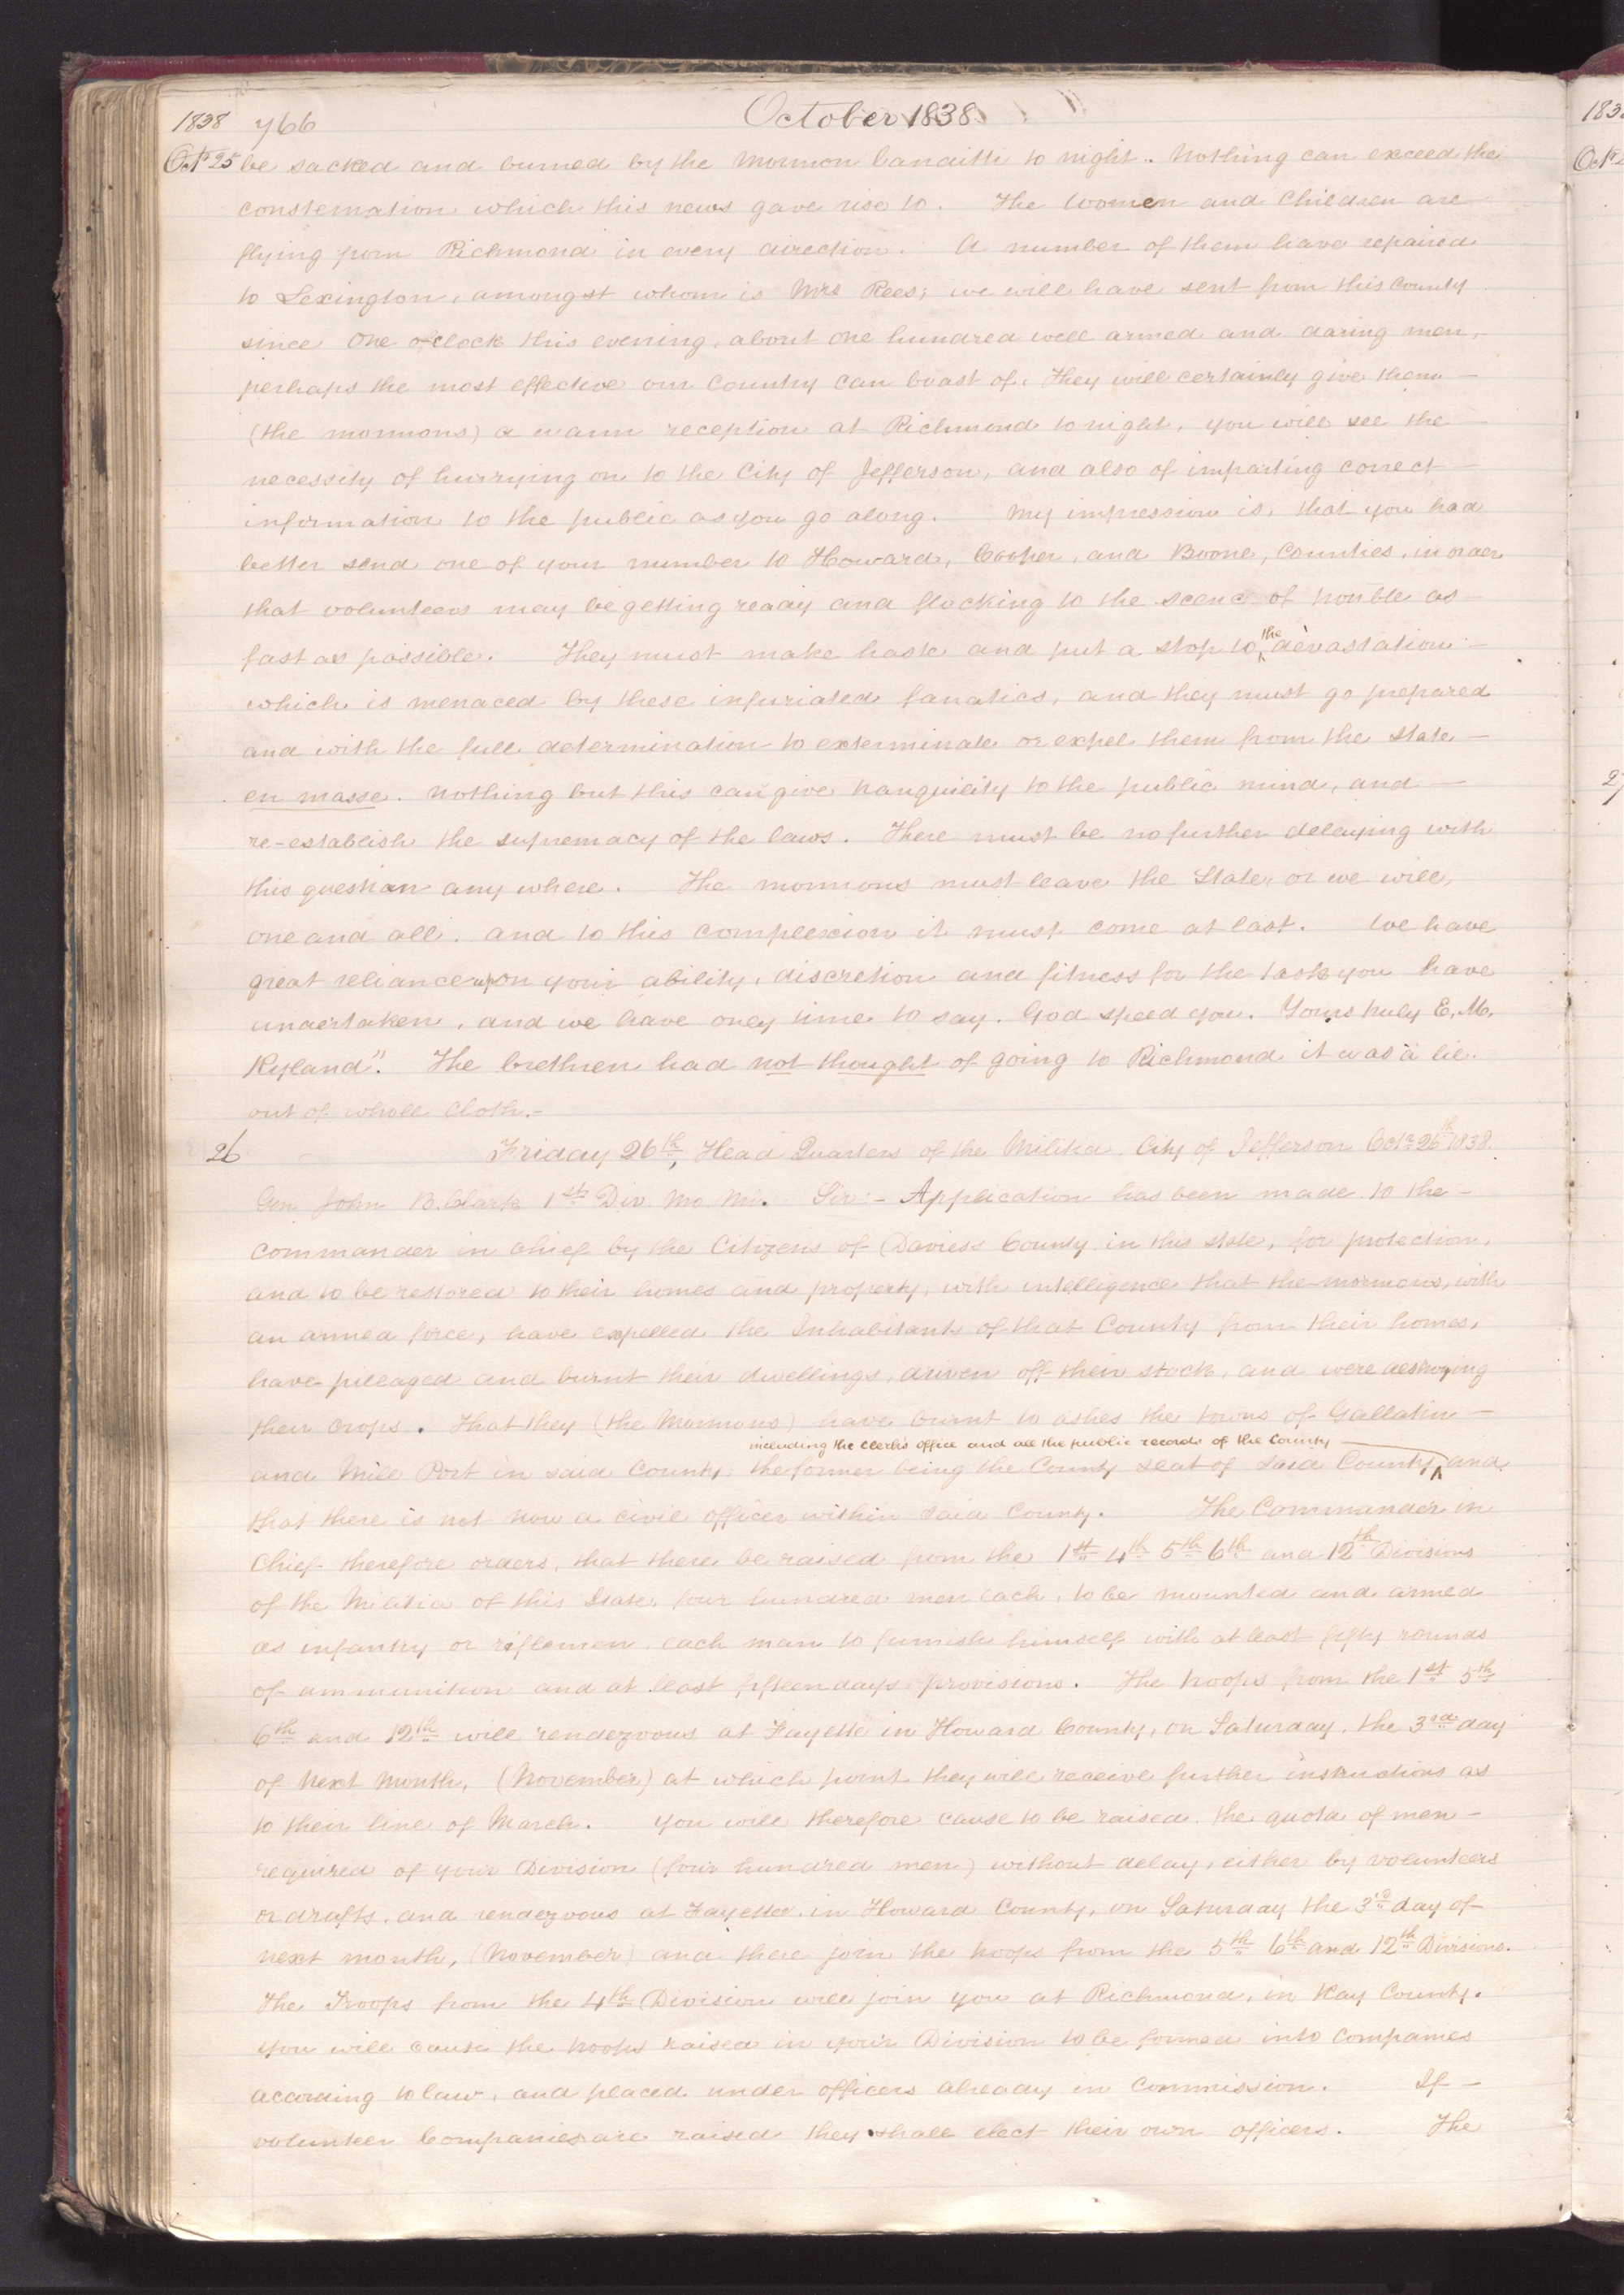 1838 766 October 1838
Oct 25 be sacked and burned by the Mormon banditti to night. Nothing can exceed the
consternation which this news gave rise to. The Women and Children are
flying from Richmond in every direction. A number of them have repaired
to Lexington, amongst whom is Mrs Rees; we will have sent from this County
since One o'clock this evening, about one hundred well armed and daring men,
perhaps the most effective our Country can boast of, They will certainly give them —
(the mormons) a warm reception at Richmond to night, you will see the —
necessity of hurrying on to the City of Jefferson, and also of imparting correct —
information to the public as you go along. My impression is, that you had
better send one of your number to Howard, Cooper, and Boone, Counties, in order
that volunteers may be getting ready and flocking to the scene of trouble as —
fast as possible. They must make haste and put a stop to ^the devastation —
which is menaced by these infuriated fanatics, and they must go prepared
and with the full determination to exterminate or expel them from the state —
en masse. nothing but this can give tranquility to the public mind, and —
re-establish the supremacy of the laws. There must be no further delaying with
this question any where. The mormons must leave the State, or we will,
one and all. and to this complexion it must come at last. We have
great reliance upon your ability, discretion and fitness for the task you have
undertaken, and we have only time to say. God speed you. Yours truly E. M.
Ryland". The brethren had not thought of going to Richmond it was a lie
out of whole cloth.—
26 Friday 26th, Head Quarters of the Militia. City of Jefferson Octr. 26th 1838.
Gen John B. Clark 1st Div. Mo. Mi. Sir:— Application has been made to the —
commander in chief by the Citizens of Daviess County in this state, for protection,
and to be restored to their homes and property, with intelligence that the mormons, with
an armed force, have expelled the Inhabitants of that County from their homes,
have pillaged and burnt their dwellings, driven off their stock, and were destroying
their crops. That they (the Mormons) have burnt to ashes the towns of Gallatin —
including the clerks office and all the public records of the County
and Mill Port in said County; the former being the County seat of said County,^ and
that there is not now a civil officer within said County. The Commander in
Chief therefore orders, that there be raised from the 1st 4th 5th 6th and 12th Divisions
of the Militia of this State, four hundred men each, to be mounted and armed
as infantry or riflemen, each man to furnish himself with at least fifty rounds
of ammunition and at least fifteen days provisions. The troops from the 1st 5th
6th and 12th will rendezvous at Fayette in Howard County, on Saturday, the 3rd day
of Next Month, (November) at which point they will receive further instructions as
to their line of March. You will therefore cause to be raised the quota of men —
required of your Division (four hundred men) without delay, either by volunteers
or drafts, and rendezvous at Fayette. in Howard County, on Saturday the 3rd day of
next month, (November) and there join the troops from the 5th 6th and 12th Divisions.
The Troops from the 4th Division will join you at Richmond, in Ray County.
you will cause the troops raised in your Division to be formed into companies
according to law, and placed under officers already in Commission. If —
volunteer Companies are raised they shall elect their own officers. The
183
Oct 2
27